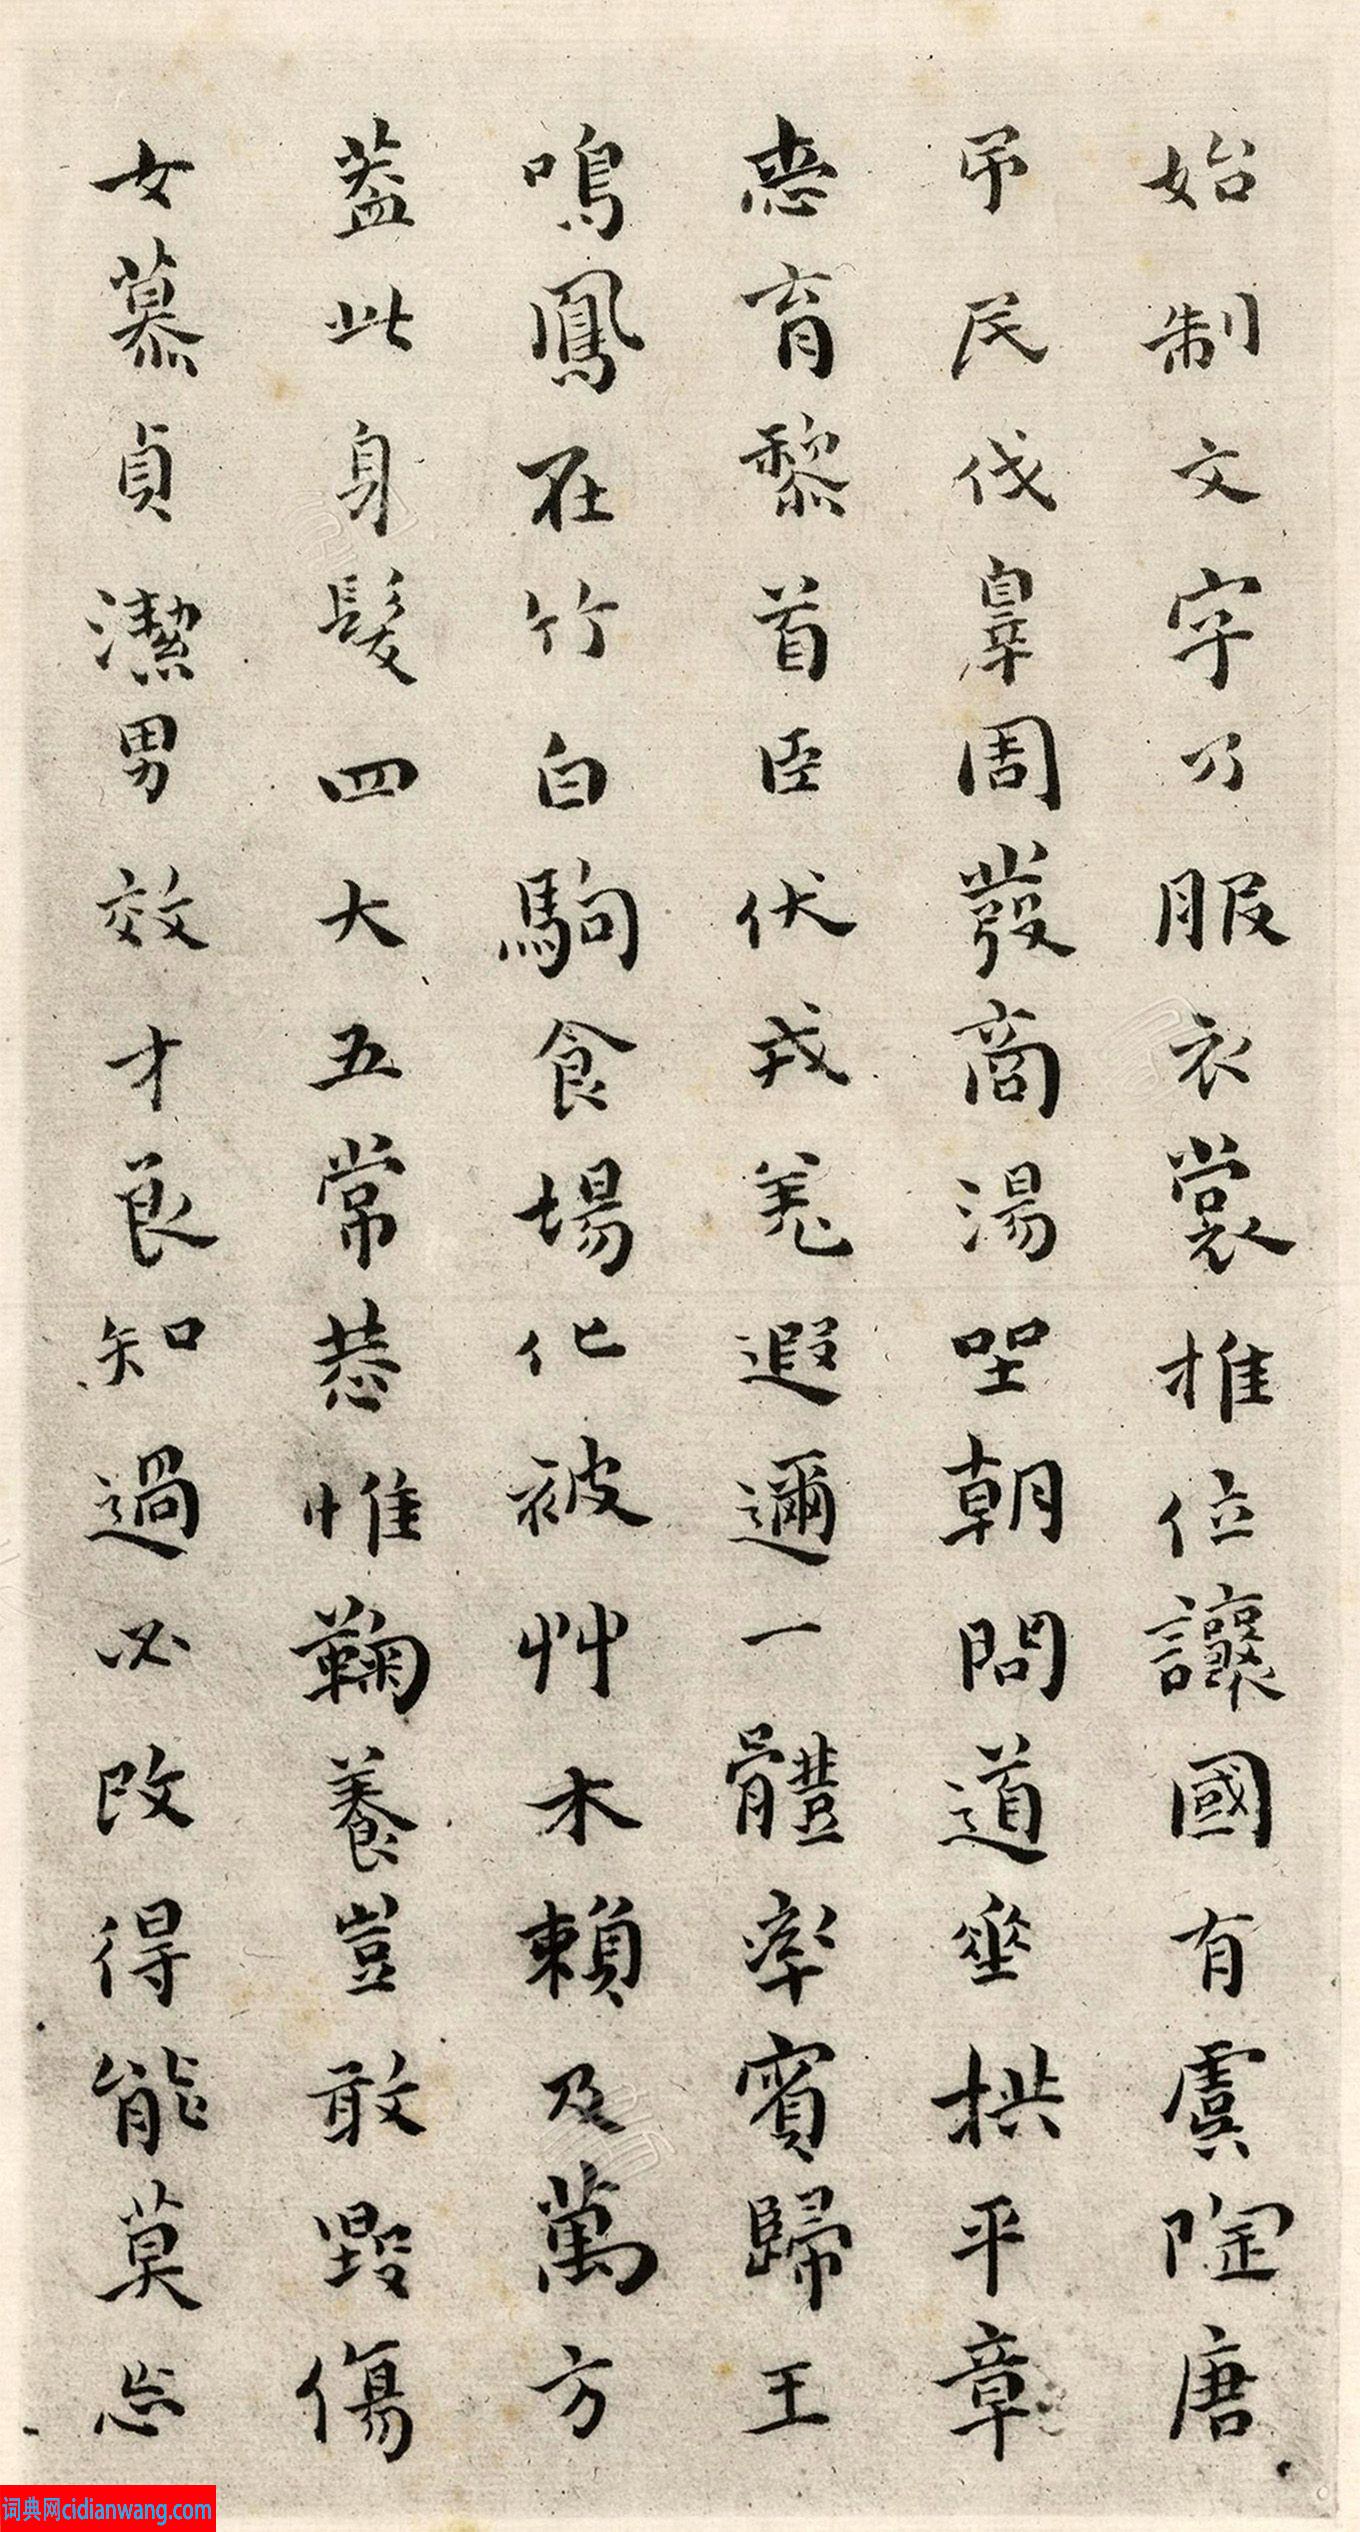 始制文字乃服衣裳推位讓國有虞陶唐
弔民伐辠周發商湯坐朝問道垂拱平章
愛育黎首臣伏戎羌遐邇一體率賓歸王
鳴鳳在竹白駒食場化被艸木賴及萬方
蓋此身髮四大五常恭惟鞠養豈敢毀傷
女慕貞潔男效才良知過必改得能莫忘
词典网cidianwang.com